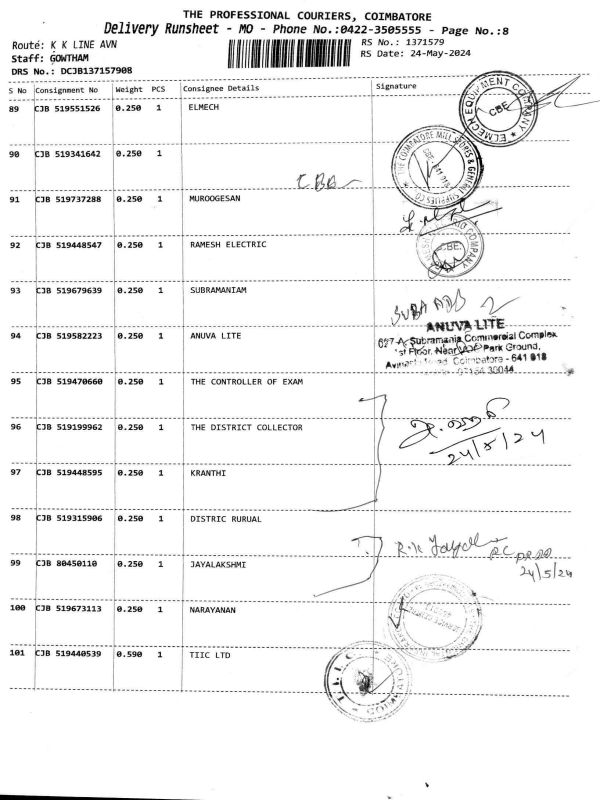 THE PROFESSIONAL COURIERS, COIMBATORE
Delivery Runsheet - MO - Phone No.:0422-3505555 - Page No.:8
Route: K K LINE AVN
RS No.: 1371579
Staff: GOWTHAM
RS Date: 24-May-2024
DRS No.: DCJB1371579OB
S No Consignment No Weight PCS Consignee Details Signature
89 CJB 519551526 0.250 1 ELMECH
ELMECH EQUIPMENT COMPANY CBE
90 CJB 519341642 0.250 1
THE COIMBATORE MILL STORES & GENERAL SUPPLIES CO.
CBE
91 CJB 519737288 0.250 1 MUROOGESAN
92 CJB 519448547 0.250 1 RAMESH ELECTRIC
COMPANY CBE.
93 CJB 519679639 0.250 1 SUBRAMANIAM
SUBA
94 CJB 519582223 0.250 1 ANUVA LITE
ANUVA LITE
627-A Subramania Commercial Complex
1st Floor, Near Park Ground,
Coimbatore - 641 018
95 CJB 519470660 0.250 1 THE CONTROLLER OF EXAM
96 CJB 519199962 0.250 1 THE DISTRICT COLLECTOR
24/5/24
97 CJB 519448595 0.250 1 KRANTHI
98 CJB 519315906 0.250 1 DISTRIC RURUAL
99 CJB 80450110 0.250 1 JAYALAKSHMI
24/5/24
100 CJB 519673113 0.250 1 NARAYANAN
101 CJB 519440539 0.590 1 TIIC LTD